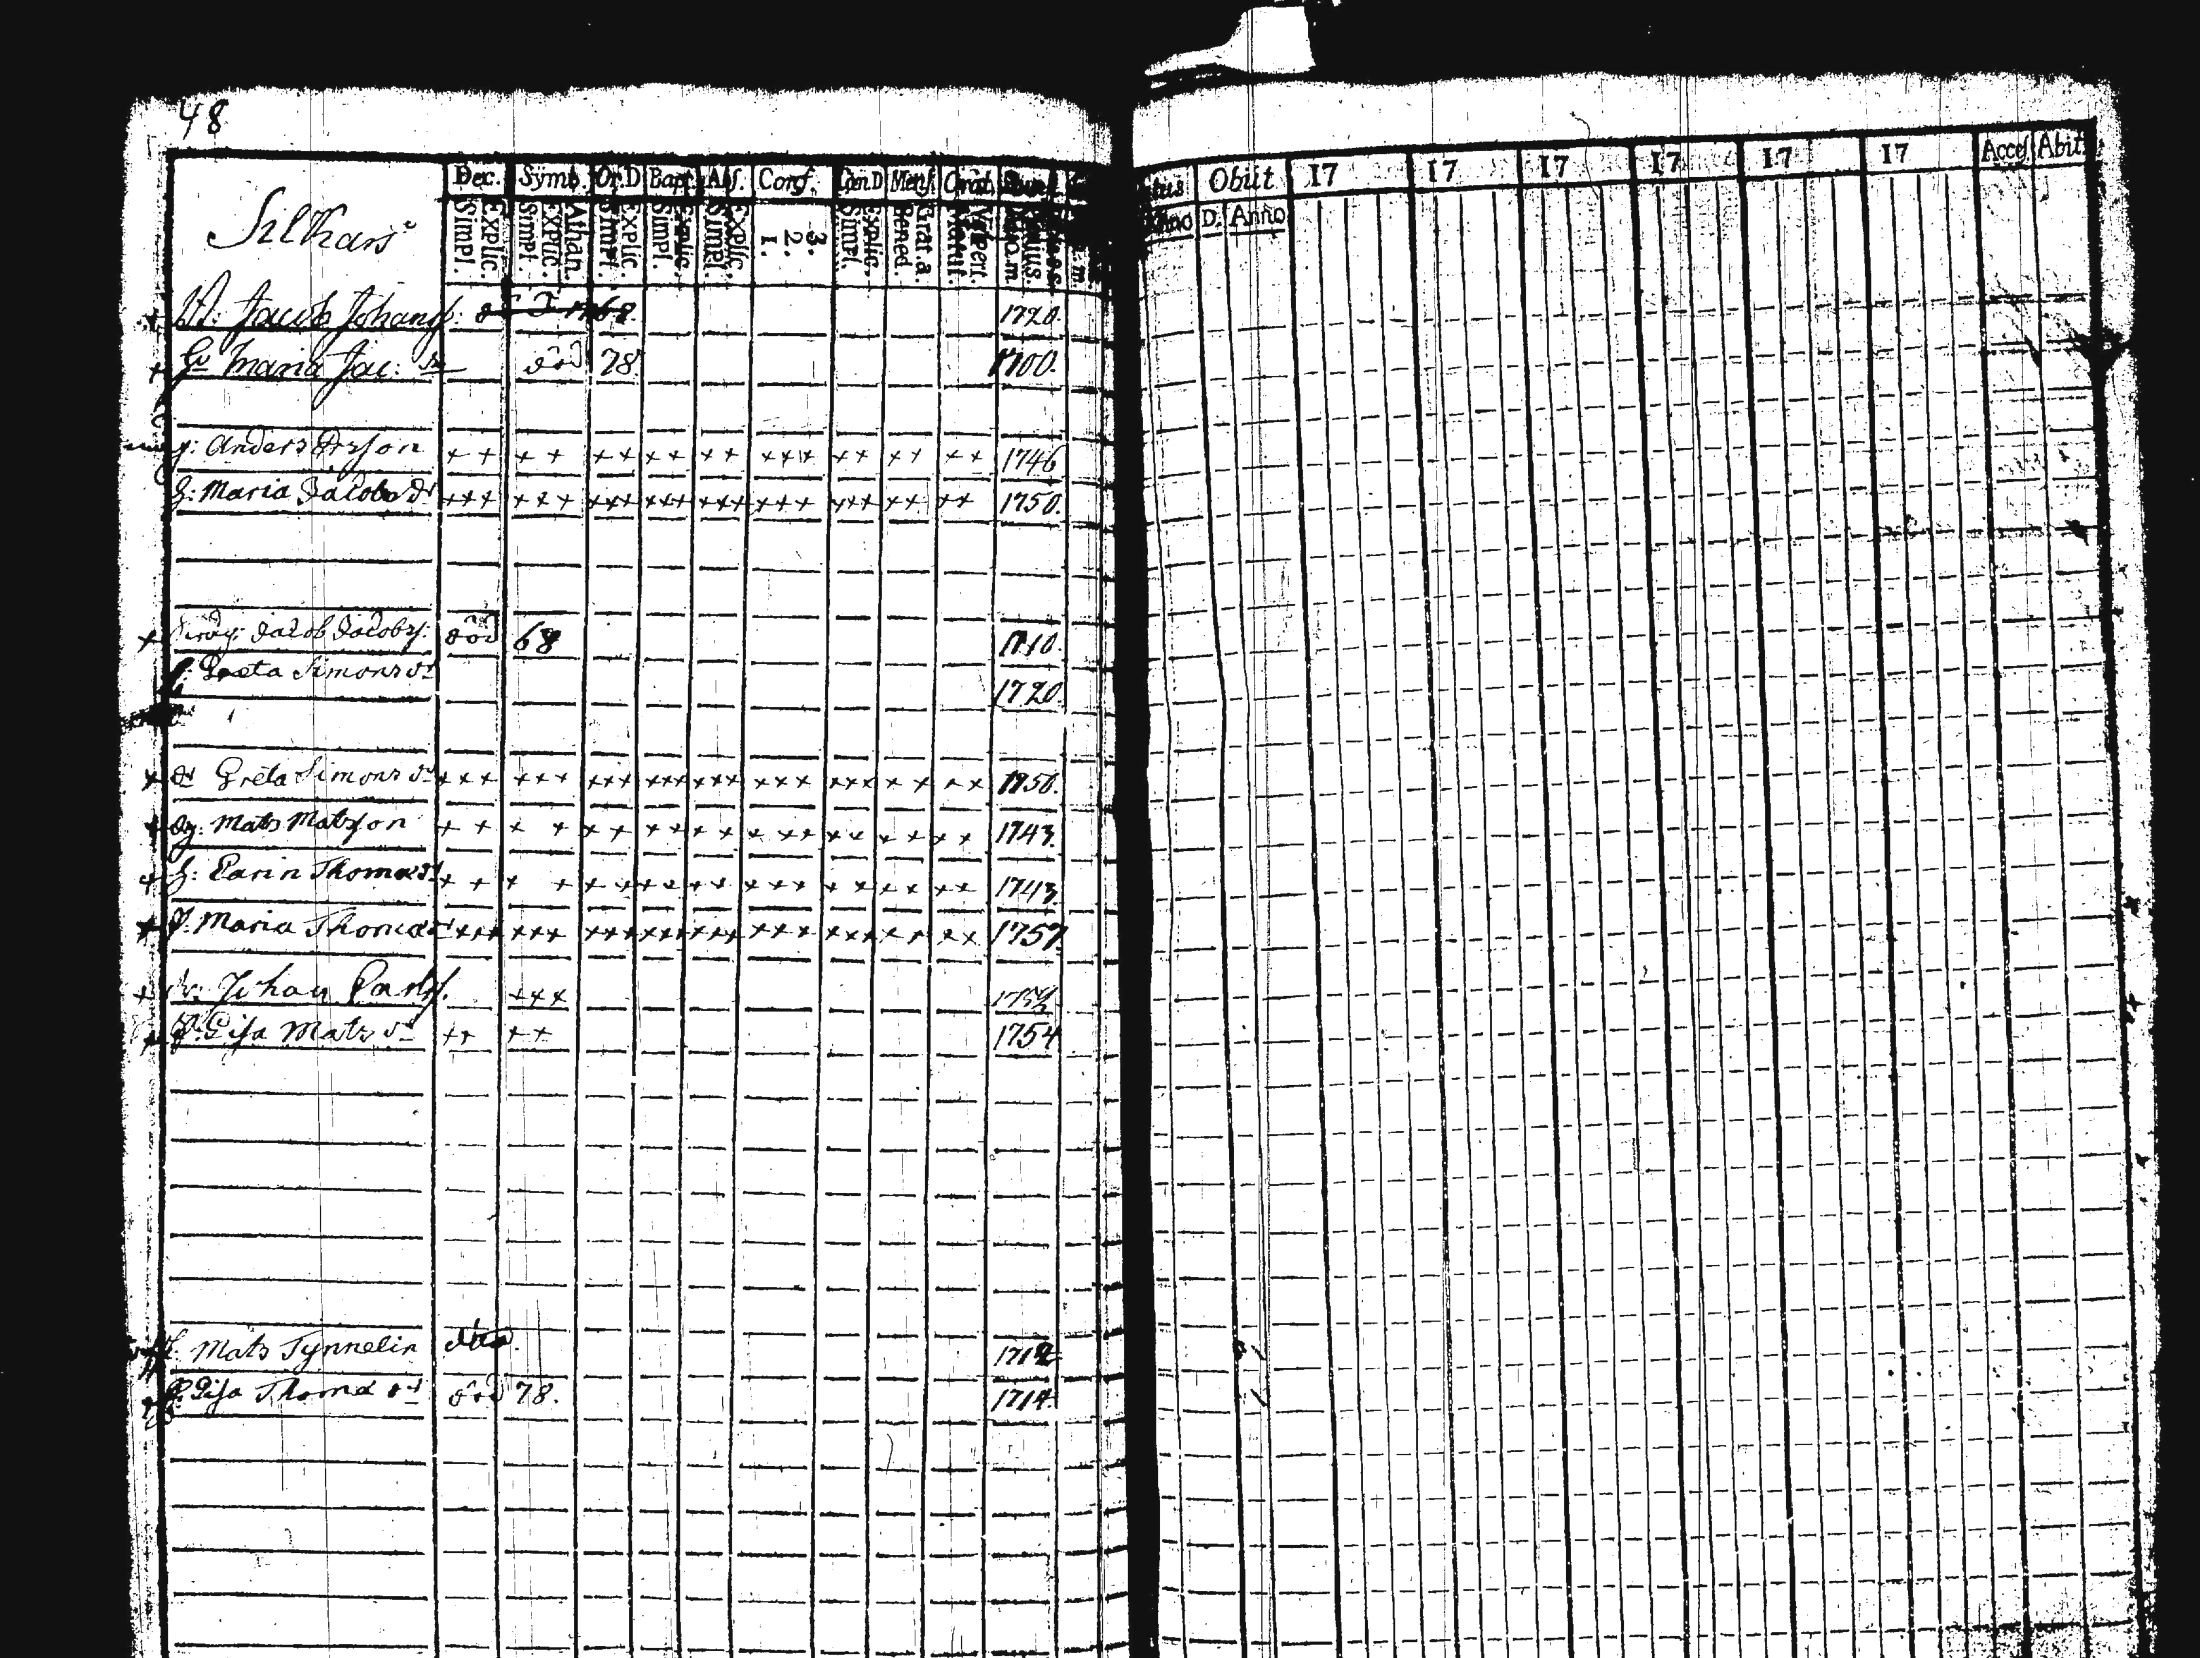 48
Dec. Symb. Or.D Bapt. Abs. Conf. CœnD Mens. Orat.
Obiit 17 17 17 17 17 17 Acces Abit
Silkars
Simpl. Explic. Simpl. Explic. Athan. Simpl. Explic. Simpl. Explic. Simpl. Explic. 1. 2. 3. Simpl. Explic. Bened. Grat.a Matut. Vespert.
Anno D. Anno
Jacob Johans: 1768 1720.
Maria Jac: dr död 78 1700.
Anders Ersson + + + + + + + + + + + + + + + + + + + 1746
h: Maria Jacobs dr +++ +++ +++ +++ +++ +++ +++ ++ ++ 1750.
+ Jacob Jacobs: död 68 1710.
Greta Simons dr 1720.
+ dr Greta Simons dr +++ +++ +++ +++ +++ +++ +++ + + + + 1750.
+ Mats Matsson + + + + + + + + + + + + + + + + + + + 1743.
+ h: Carin Thomas dr + + + + + + + + + + + + + + + + + + + 1743.
+ P. Maria Thomas dr +++ +++ +++ +++ +++ +++ +++ ++ ++ 1757.
+ Johan Carls. +++
+ P: Lisa Mats dr ++ ++ 1754
Mats Tynnelin 1712
Lisa Thomas dr död 78. 1714